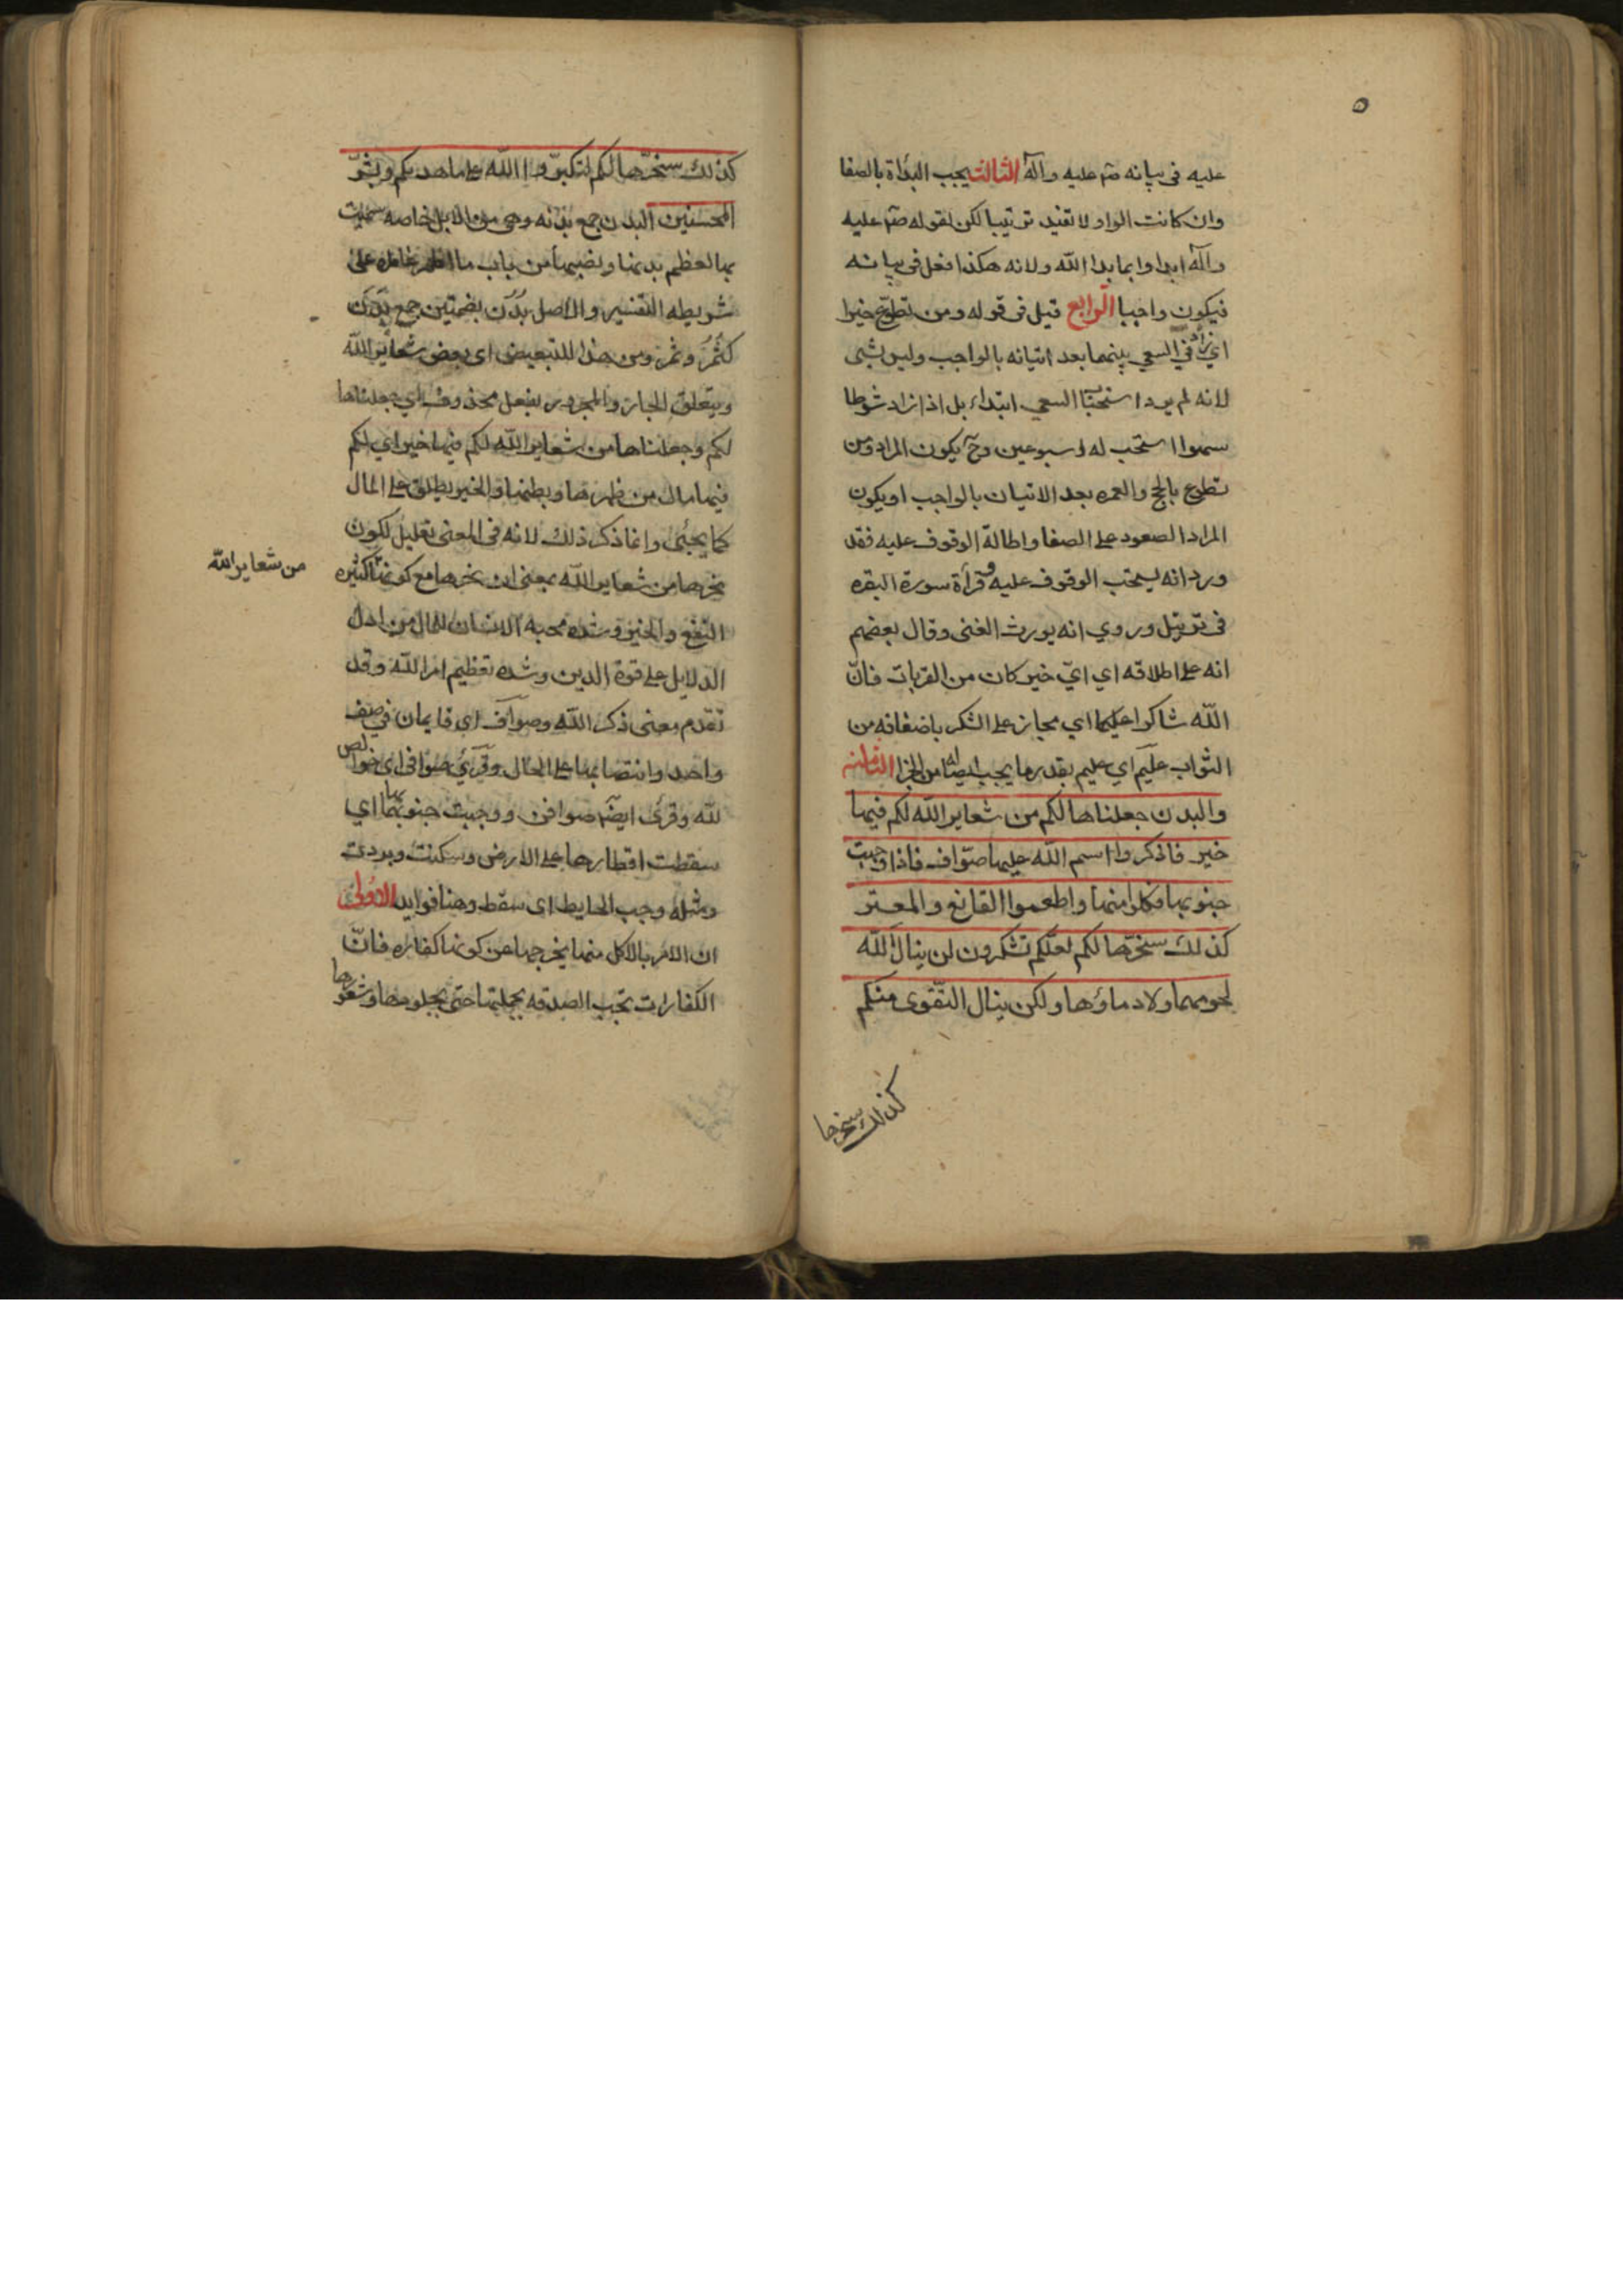 ٥
عليه في بيانه صم عليه وآله الثالث يجب البدأة بالصفا
وان كانت الواو لا تفيد ترتيبا لكن لقوله صم عليه
وآله ابداوا بما بدا الله ولانه هكذا فعل في بيانه
فيكون واجبا الرابع قيل في قوله ومن تطوع خيرا
اي زاد في السعي بينهما بعد اتيانه بالواجب وليس بشي
لانه لم يرد استحباب السعي ابتداء بل اذا زاد شوطا
سهوا استحب له اسبوعين وح يكون المراد ومن
تطوع بالحج والعمره بعد الاتيان بالواجب او يكون
المراد الصعود على الصفا واطالة الوقوف عليه فقد
ورد انه يستحب الوقوف عليه وقرأة سورة البقره
في ترتيل وروي انه يورث الغنى وقال بعضهم
انه على اطلاقه اي اي خير كان من القربات فان
الله شاكر عليم اي مجاز على الشكر باضعافه من
الثواب عليم اي عليم بقدر ما يجب ايصاله من الجزا الثامنه
والبدن جعلناها لكم من شعاير الله لكم فيها
خير فاذكروا اسم الله عليها صواف فاذا وجبت
جنوبها فكلوا منها واطعموا القانع والمعتر
كذلك سخرها لكم لعلكم تشكرون لن ينال الله
لحومها ولا دماؤها ولكن ينال التقوى منكم
كذلك سخرها
كذلك سخرها لكم لتكبروا الله على ما هديكم وبشر
المحسنين البدن جمع بدنه وهي من الابل خاصه سميت
بها لعظم بدنها ونصبها من باب ما اضمر عامله على
شريطه التفسير والاصل بدن بضمتين جمع بدن
كثمر وثمر ومن هذا للتبعيض اي بعض شعاير الله
ويتعلق الجار والمجرور بفعل محذوف اي جعلناها
لكم وجعلناها من شعاير الله لكم فيها خير اي لكم
فيها مال من ظهرها وبطنها والخير يطلق على المال
كما يجئ وانما ذكر ذلك لانه في المعنى تعليل لكون
نحرها من شعاير الله بمعنى ان نحرها مع كونها كثيره
من شعاير الله
النفع والخير وشده محبه الانسان للمال من ادل
الدلايل على قوة الدين وشده تعظيم امر الله وقد
تقدم معنى ذكر الله وصواف اي قايمات في صف
واحد وانتصابها على الحال وقرئ صوافي اي خوالص
لله وقرئ ايضا صوافن ووجبت جنوبها اي
سقطت اقطارها على الارض وسكنت وبردت
ومثله وجب الحايط اي سقط وهنا فوايد الاولى
ان الامر بالاكل منها يخرجها عن كونها كفاره فان
الكفارات تجب الصدقه بجملتها حتى بجلودها وشعرها